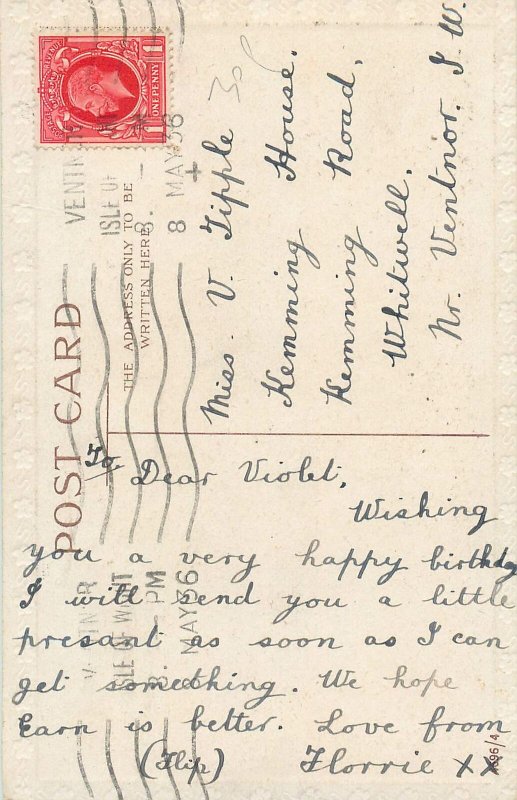 POST CARD
THE ADDRESS ONLY TO BE
WRITTEN HERE
ONE PENNY
VENTNOR
ISLE OF
8
8 MAY 36
30
Miss. V. Tipple
Kemming House.
Kemming Road,
Whitwell.
Nr. Ventnor. I. W.
To Dear Violet,
Wishing
you a very happy birthday
I will send you a little
presant as soon as I can
get something. We hope
Earn is better. Love from
(Flip) Florrie XX
VENTNOR
ISLE OF WIGHT
PM
8 MAY 36